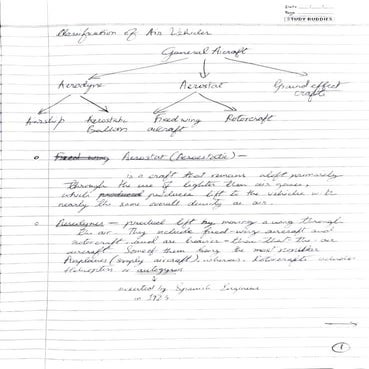 Date
Page
STUDY BUDDIES
Classification of Air Vehicles
General Aircraft
Aerodyne Aerostat Ground effect
crafts
Airship Aerostatic Fixed wing Rotorcraft
Balloon aircraft
Fixed wing Aerostat (Aerostatic) –
is a craft that remains aloft primarily
through the use of lighter than air gases,
which produced produces lift to the vehicles with
nearly the same overall density as air.
Aerodynes – produces lift by moving a wing through
the air. They include fixed-wing aircraft and
rotorcraft, and are heavier-than that the air
aircraft. Some of them being the most
Airplanes (simply aircraft), whereas, Rotorcrafts include
Helicopters or autogyros
invented by Spanish Engineer
in 1923
1